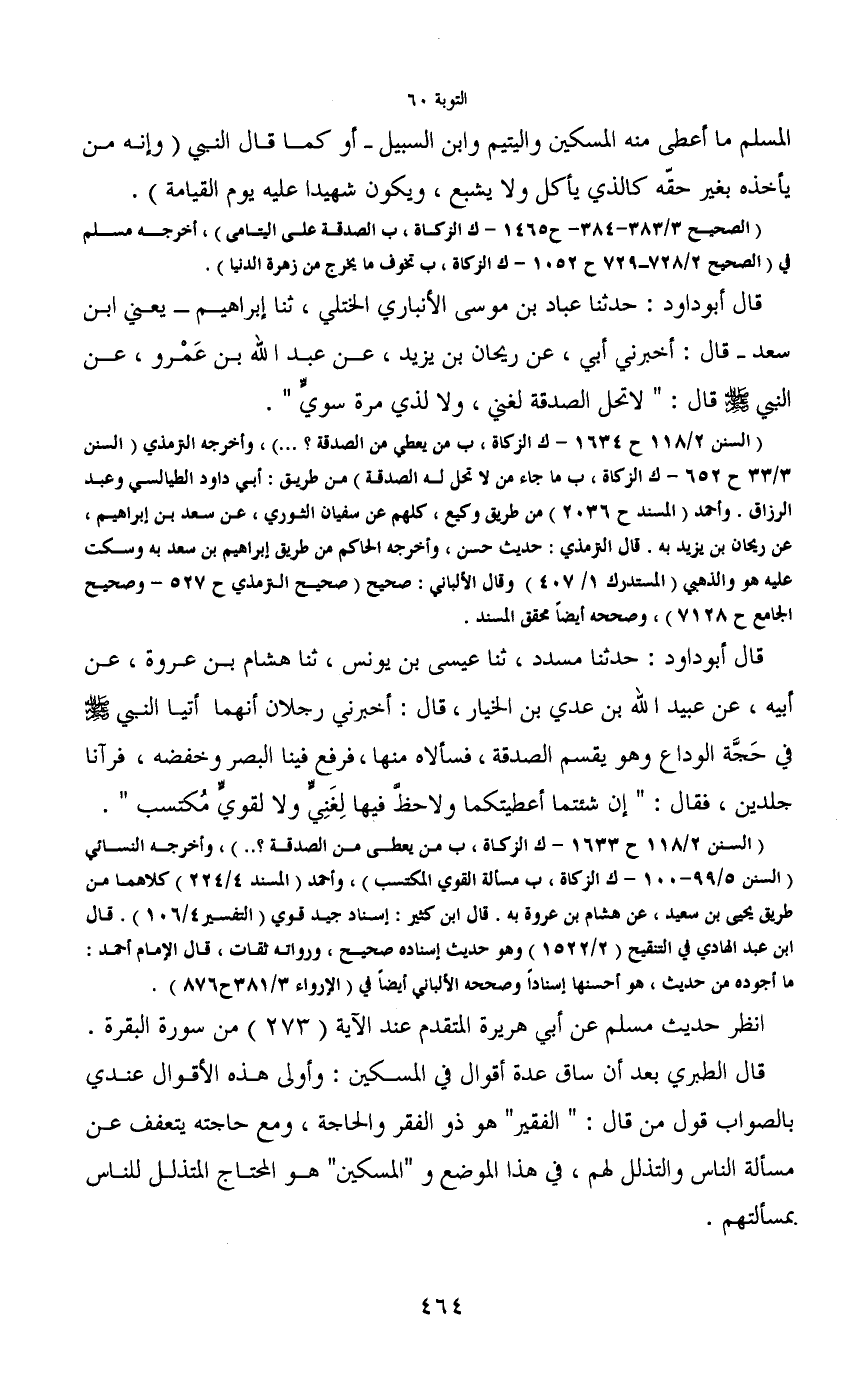 التوبة ٦٠
المسلم ما أعطى منه المسكين واليتيم وابن السبيل ـ أو كمـا قـال النـبي ( وإنـه مـن
يأخذه بغير حقّه كالذي يأكل ولا يشبع ، ويكون شهيدا عليه يوم القيامة ) .
( الصحيح ٣٨٣/٣-٣٨٤- ح١٤٦٥ - ك الزكـاة ، ب الصدقـة علـى اليتـامى ) ، أخرجـه مسـلم
في ( الصحيح ٧٢٨/٢ـ٧٢٩ ح ١٠٥٢ - ك الزكاة ، ب تخوف ما يخرج من زهرة الدنيا ) .
قال أبوداود : حدثنا عباد بن موسى الأنباري الختلي ، ثنا إبراهيـم ـ يعـني ابـن
سعد ـ قال : أخبرني أبي ، عن ريحان بن يزيد ، عـن عبـد ا لله بـن عَمْـرو ، عـن
النبي ﷺ قال : " لاتحل الصدقة لغني ، ولا لذي مرة سويٍّ " .
( السنن ١١٨/٢ ح ١٦٣٤ - ك الزكاة ، ب من يعطي من الصدقة ؟ ...) ، وأخرجه الترمذي ( السنن
٣٣/٣ ح ٦٥٢ - ك الزكاة ، ب ما جاء من لا تحل لـه الصدقـة ) مـن طريـق : أبـي داود الطيالسي وعبـد
الرزاق . وأحمد ( المسند ح ٢٠٣٦ ) من طريق وكيع ، كلهم عن سفيان الثـوري ، عـن سعد بـن إبراهيـم ،
عن ريحان بن يزيد به . قال الترمذي : حديث حسن ، وأخرجه الحاكم من طريق إبراهيم بن سعد به وسـكت
عليه هو والذهبي ( المستدرك ١/ ٤٠٧ ) وقال الألباني : صحيح ( صحيـح الـترمذي ح ٥٢٧ - وصحيـح
الجامع ح ٧١٢٨ ) ، وصححه أيضاً محقق المسند .
قال أبوداود : حدثنا مسدد ، ثنا عيسى بن يونس ، ثنا هشام بـن عـروة ، عـن
أبيه ، عن عبيد ا لله بن عدي بن الخيار ، قال : أخبرني رجلان أنهما أتيـا النـبي ﷺ
في حَجَّة الوداع وهو يقسم الصدقة ، فسألاه منها ، فرفع فينا البصر وخفضه ، فرآنا
جلدين ، فقال : " إن شئتما أعطيتكما ولاحظَّ فيها لِغَنِيٍّ ولا لقويٍّ مُكتسب " .
( السنن ١١٨/٢ ح ١٦٣٣ - ك الزكـاة ، ب مـن يعطـى مـن الصدقـة ؟.. ) ، وأخرجـه النسـائي
( السنن ٩٩/٥-١٠٠ - ك الزكاة ، ب مسألة القوي المكتسب ) ، وأحمد ( المسند ٢٢٤/٤ ) كلاهمـا مـن
طريق يحيى بن سعيد ، عن هشام بن عروة به . قال ابن كثير : إسناد جيد قوي ( التفسير١٠٦/٤ ) . قـال
ابن عبد الهادي في التنقيح ( ١٥٢٢/٢ ) وهو حديث إسناده صحيـح ، ورواتـه ثقـات ، قـال الإمام أحمـد :
ما أجوده من حديث ، هو أحسنها إسناداً وصححه الألباني أيضاً في ( الإرواء ٣٨١/٣ح٨٧٦ ) .
انظر حديث مسلم عن أبي هريرة المتقدم عند الآية ( ٢٧٣ ) من سورة البقرة .
قال الطبري بعد أن ساق عدة أقوال في المسـكين : وأولى هـذه الأقـوال عنـدي
بالصواب قول من قال : " الفقير" هو ذو الفقر والحاجة ، ومع حاجته يتعفف عـن
مسألة الناس والتذلل لهم ، في هذا الموضع و "المسكين" هـو المحتاج المتذلـل للناس
بمسألتهم .
٤٦٤